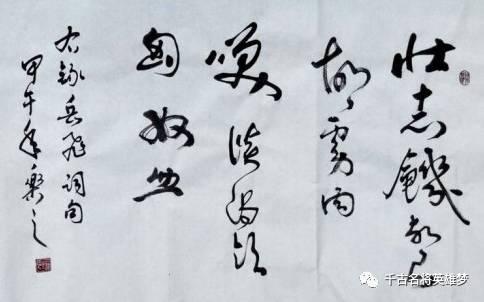 壮志饑餐
胡虏肉
笑谈渴饮
匈奴血
右録岳飛词句
甲午年樂之
千古名将英雄梦